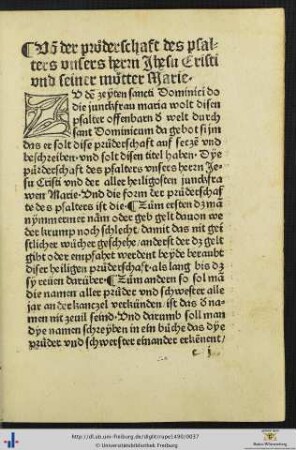 ¶Vō der průderschaft des psal-
ters vnsers herrn Jhesu Cristi
vnd seiner můtter Marie.
ZV dē zeyten sancti Dominici do
die junckfrau maria wolt disen
psalter offenbarn d welt durch
sant Dominicum da gebot si jm
das er solt dise prüderschaft auf setzē vnd
beschreiben vnd solt disen titel haben. Dye
průderschaft des psalters vnsers herrn Je-
su Cristi vnd der aller heiligosten junckfra
wen Marie. Vnd die form der průderschaf
te des psalters ist die. ¶Zům ersten dz mā
nymmermer nām oder geb gelt dauon we
der krump noch schlecht. damit das nit gei
stlicher wůcher geschehe/ anderst der dz gelt
gibt oder empfahet werdent beyde beraubt
diser heiligen průderschaft als lang bis dz
sy reuen darüber. ¶Zům andern so sol mā
die namen aller průder vnd schwester alle
jar an der kanczel verkünden. ist das d na-
men nit zeuil seind. Vnd darumb soll man
dye namen schreyben in ein bůche das dye
průder vnd schwester einander erkēnent/
c j
http://dl.ub.uni-freiburg.de/diglit/rape1490/0037
© Universitätsbibliothek Freiburg
Baden-Württemberg